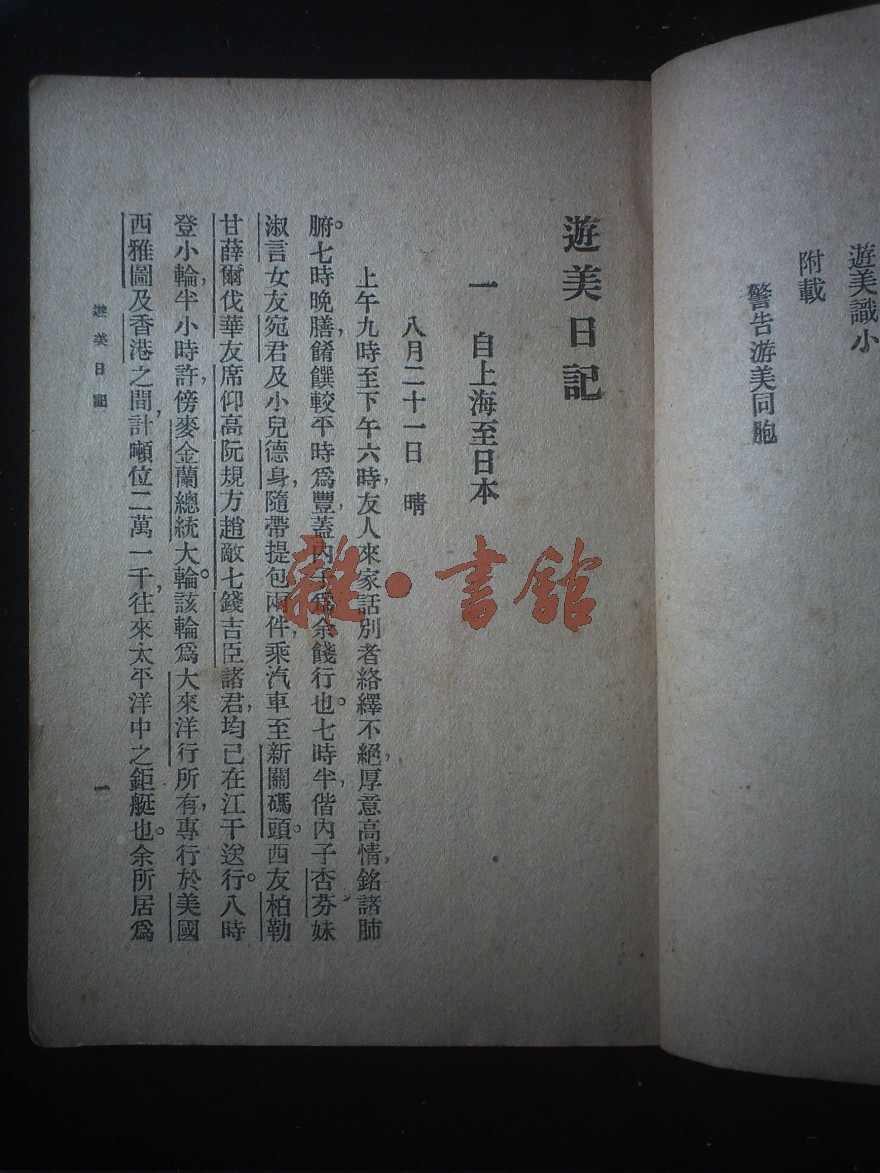 遊美識小
附載
警告游美同胞
遊美日記
一 自上海至日本
八月二十一日 晴
上午九時至下午六時，友人來家話別者絡繹不絕，厚意高情，銘諸肺
腑。七時晚膳，餚饌較平時爲豐，蓋內子爲余餞行也。七時半，偕內子杏芬妹
淑言女友宛君及小兒德身，隨帶提包兩件，乘汽車至新關碼頭。西友柏勒
甘薛爾伐華友席仰高阮規方趙敵七錢吉臣諸君，均已在江干送行。八時
登小輪，半小時許，傍麥金蘭總統大輪。該輪爲大來洋行所有，專行於美國
西雅圖及香港之間，計噸位二萬一千，往來太平洋中之鉅艇也。余所居爲
遊美日記
一
雜·書館